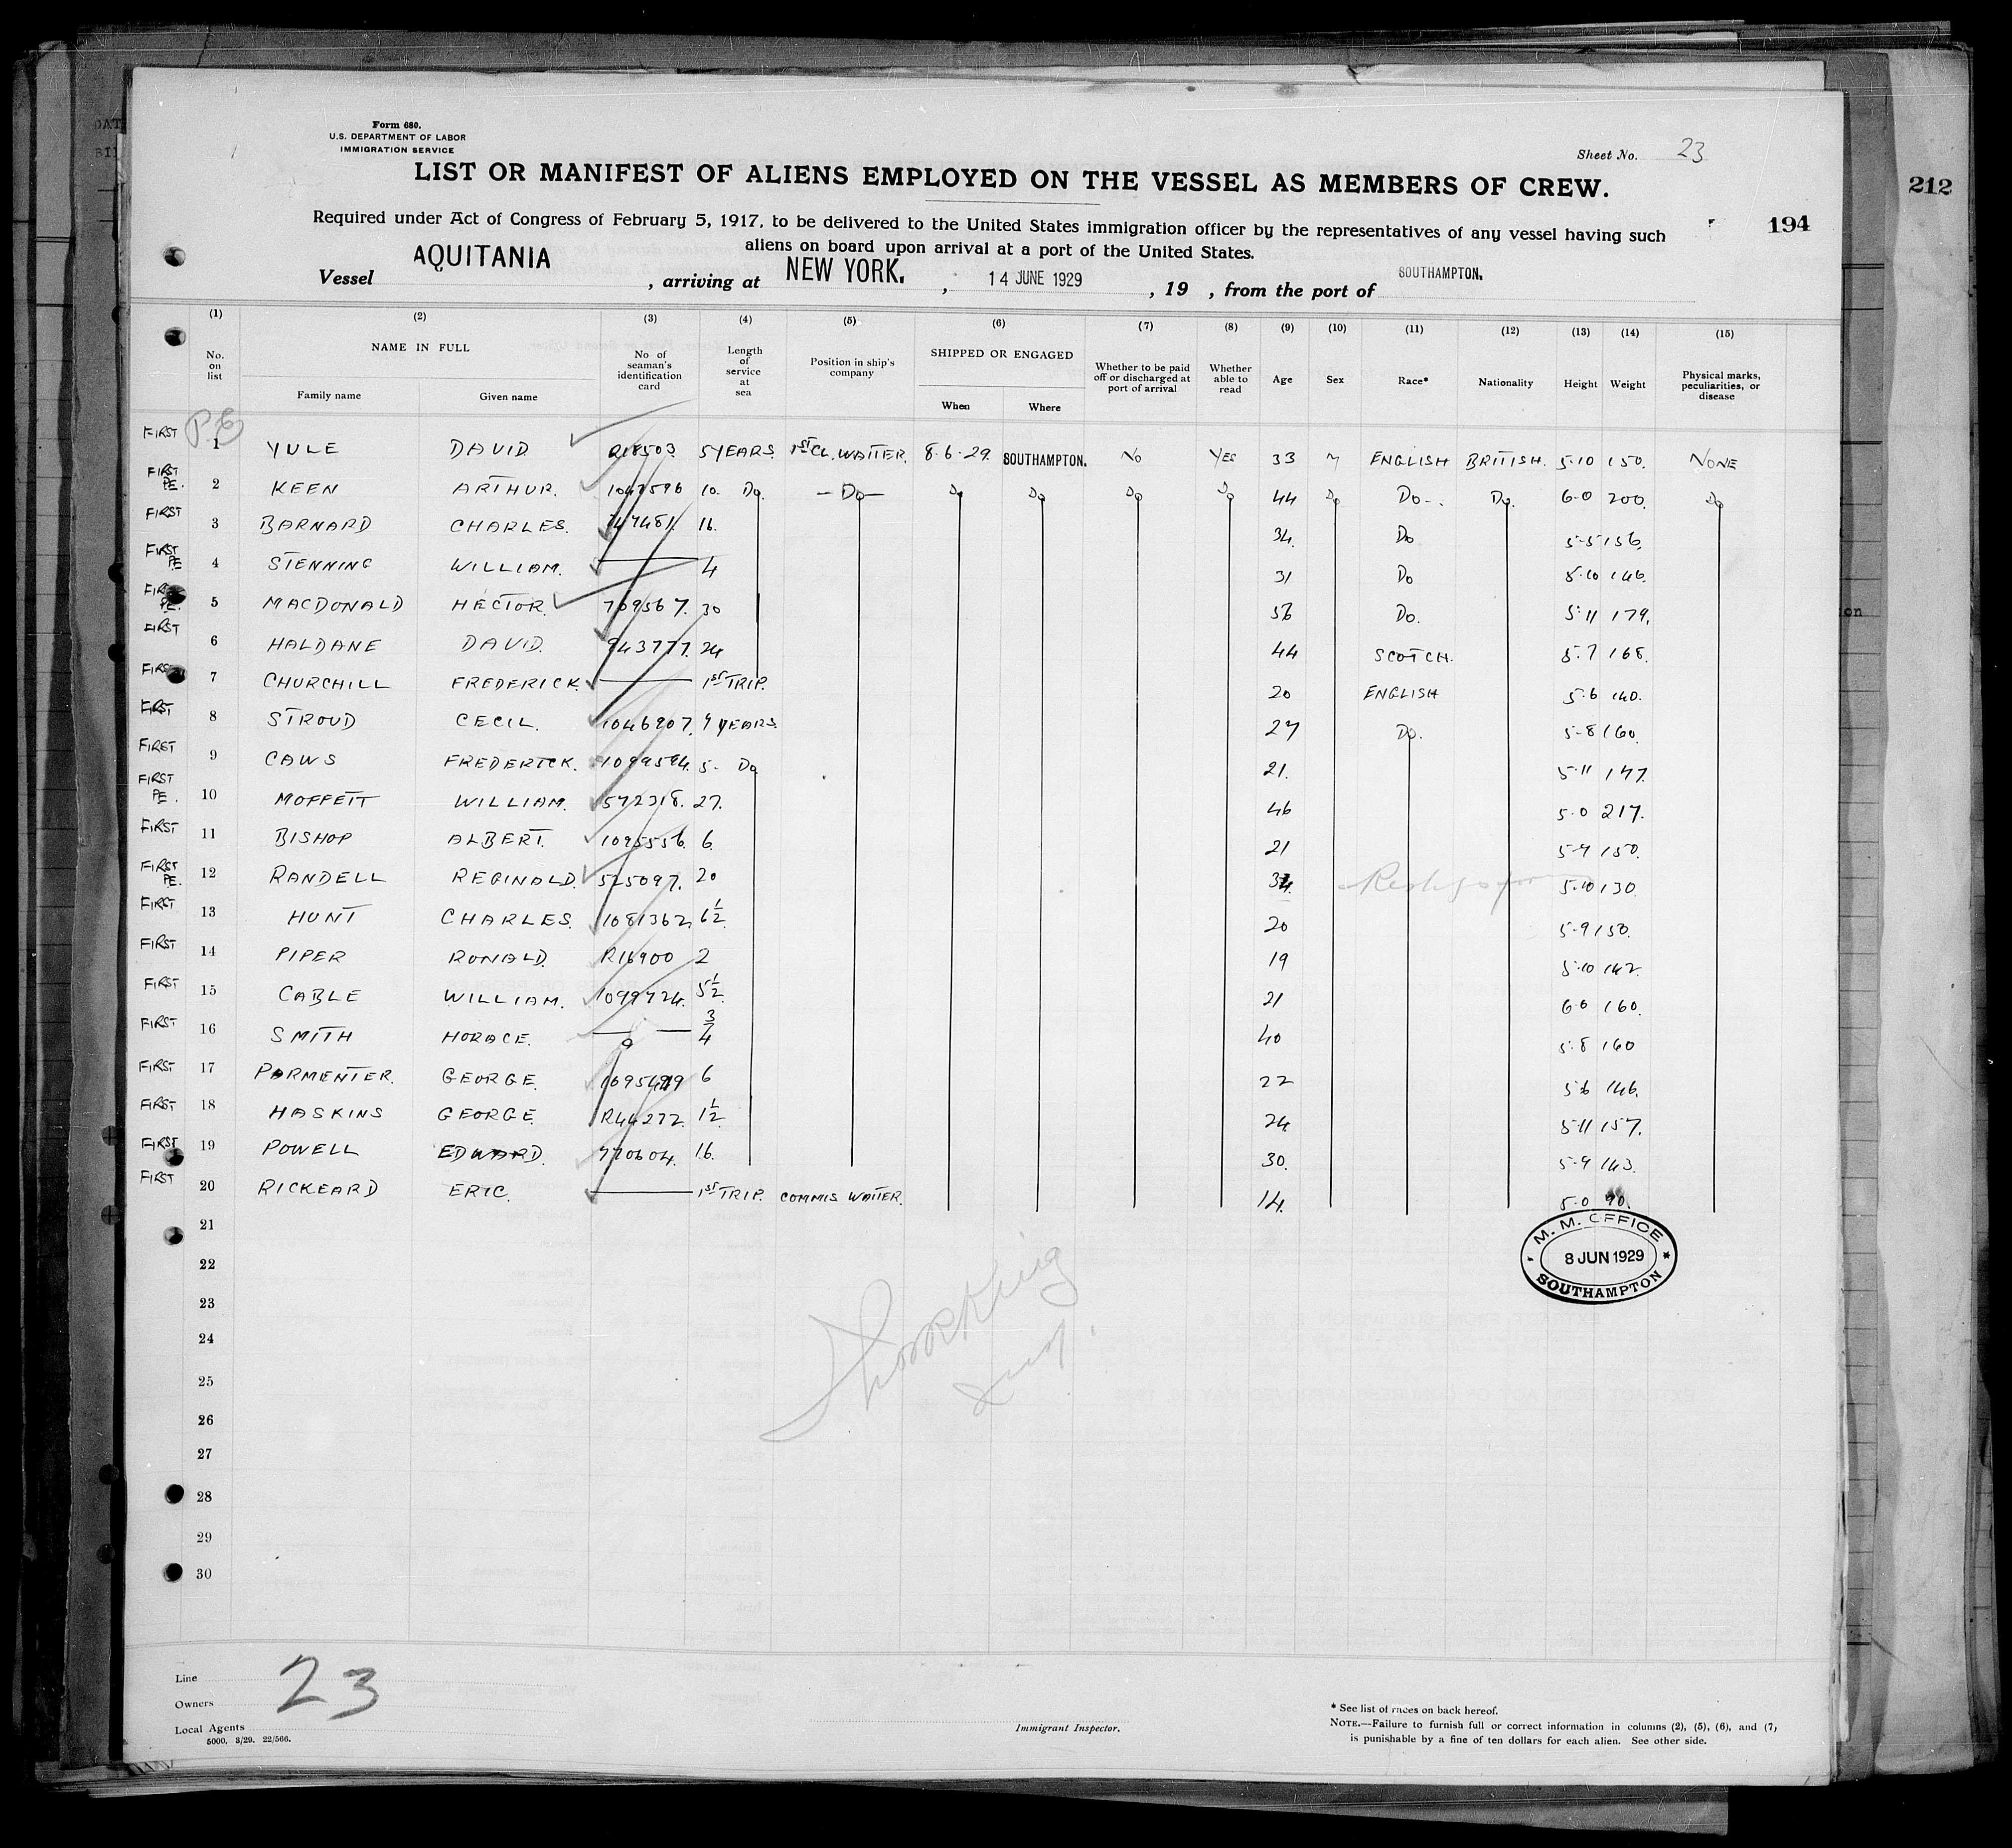 Form 680.
U.S. DEPARTMENT OF LABOR
IMMIGRATION SERVICE
Sheet No. 23
LIST OR MANIFEST OF ALIENS EMPLOYED ON THE VESSEL AS MEMBERS OF CREW.
212
194
Required under Act of Congress of February 5, 1917, to be delivered to the United States immigration officer by the representatives of any vessel having such
aliens on board upon arrival at a port of the United States.
Vessel AQUITANIA, arriving at NEW YORK., 14 JUNE 1929, 19 , from the port of SOUTHAMPTON.
(1) (2) (3) (4) (5) (6) (7) (8) (9) (10) (11) (12) (13) (14) (15)
No. on list NAME IN FULL Family name Given name No of seaman's identification card Length of service at sea Position in ship's company SHIPPED OR ENGAGED When Where Whether to be paid off or discharged at port of arrival Whether able to read Age Sex Race* Nationality Height Weight Physical marks, peculiarities, or disease
FIRST 1 YULE DAVID R18503 5 YEARS 1ST CL. WAITER. 8.6.29. SOUTHAMPTON. NO YES 33 M ENGLISH BRITISH. 5.10 150. NONE
FIRST PE. 2 KEEN ARTHUR. 1047596 10. Do. -Do- Do Do Do Do 44 Do Do-. Do. 6-0 200. Do
FIRST 3 BARNARD CHARLES. 747481 16. 34. Do 5-5 156.
FIRST PE 4 STENNING WILLIAM. 4 31 Do 5.10 146.
FIRST PE. 5 MACDONALD HECTOR. 769567. 30 56 Do. 5.11 179.
FIRST 6 HALDANE DAVID. 943777. 24 44 SCOTCH. 5.7 168.
FIRST 7 CHURCHILL FREDERICK. 1ST TRIP. 20 ENGLISH 5.6 140.
FIRST 8 STROUD CECIL. 1046907. 9 YEARS. 27 Do. 5-8 160.
FIRST 9 CAWS FREDERICK. 1099594. 5- Do 21. 5.11 147.
FIRST PE. 10 MOFFETT WILLIAM. 572318. 27. 46 5.0 217.
FIRST 11 BISHOP ALBERT. 1095556. 6. 21 5-9 150.
FIRST PE. 12 RANDELL REGINALD. 525097. 20 34. 5.10 130.
FIRST 13 HUNT CHARLES. 1081362. 6½ 20 5-9 150.
FIRST 14 PIPER RONALD. R16900 2 19 5.10 142.
FIRST 15 CABLE WILLIAM. 1099724. 5½ 21 6.0 160.
FIRST 16 SMITH HORACE. ¾ 40 5.8 160
FIRST 17 PARMENTER. GEORGE. 6 22 5.6 146.
FIRST 18 HASKINS GEORGE. R44272. 1½ 24 5.11 157.
FIRST 19 POWELL EDWARD. 770604. 16. 30. 5.9 143.
FIRST 20 RICKEARD ERIC. 1ST TRIP. COMMIS WAITER. 14. 5.0 90.
21
22
23
24
25
26
27
28
29
30
M. M. OFFICE
8 JUN 1929
SOUTHAMPTON
23
Line
Owners
Local Agents
5000. 3/29. 22/566.
Immigrant Inspector.
* See list of races on back hereof.
NOTE.—Failure to furnish full or correct information in columns (2), (5), (6), and (7)
is punishable by a fine of ten dollars for each alien. See other side.